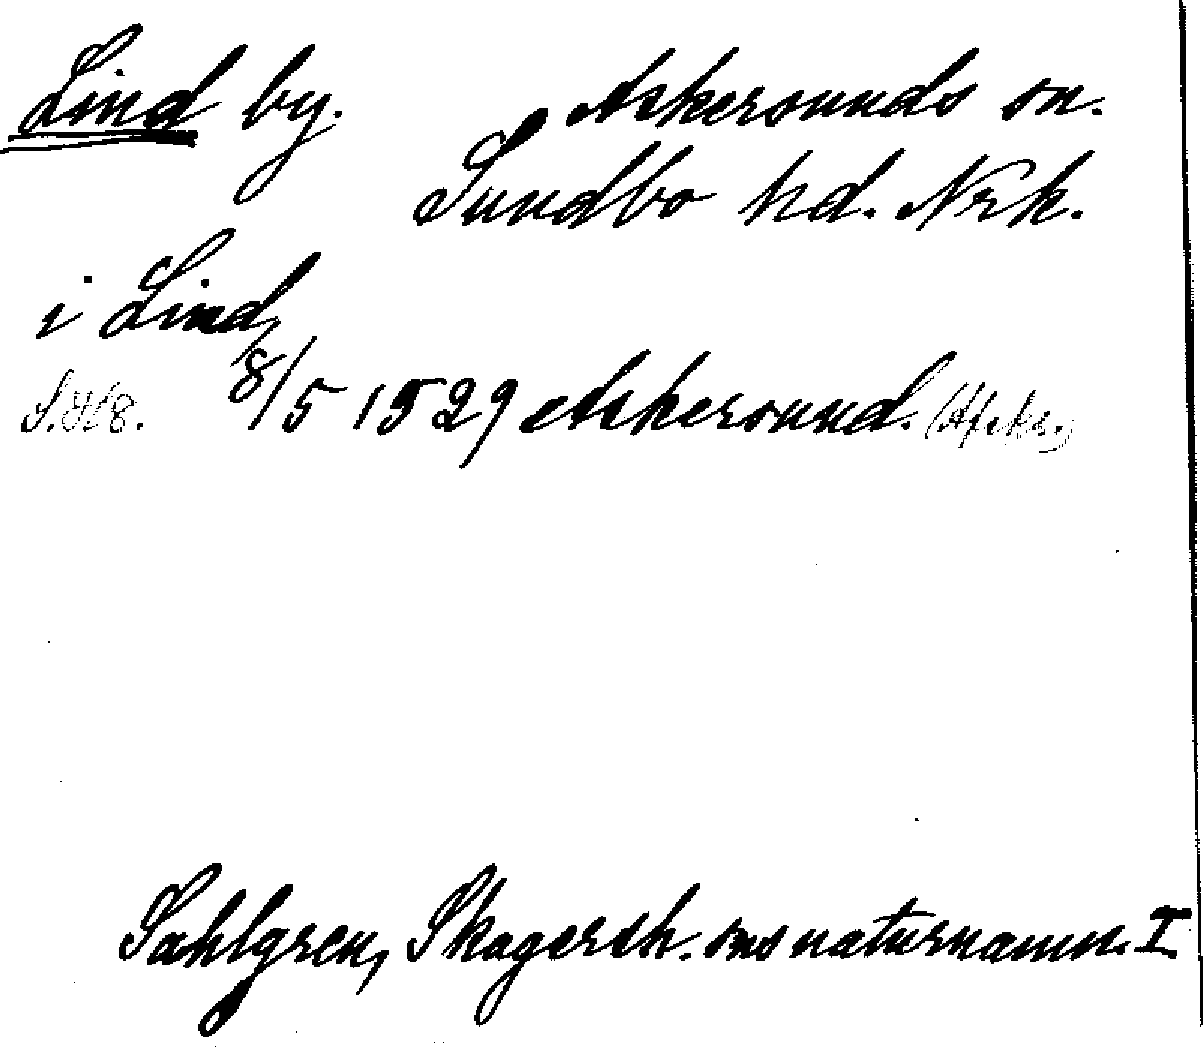 Lind by. Askersunds sn.
Sundbo hd. Nrk.
i Lind
8/5 1529 Askersund.
Sahlgren, Skagersh. sns naturnamn. I